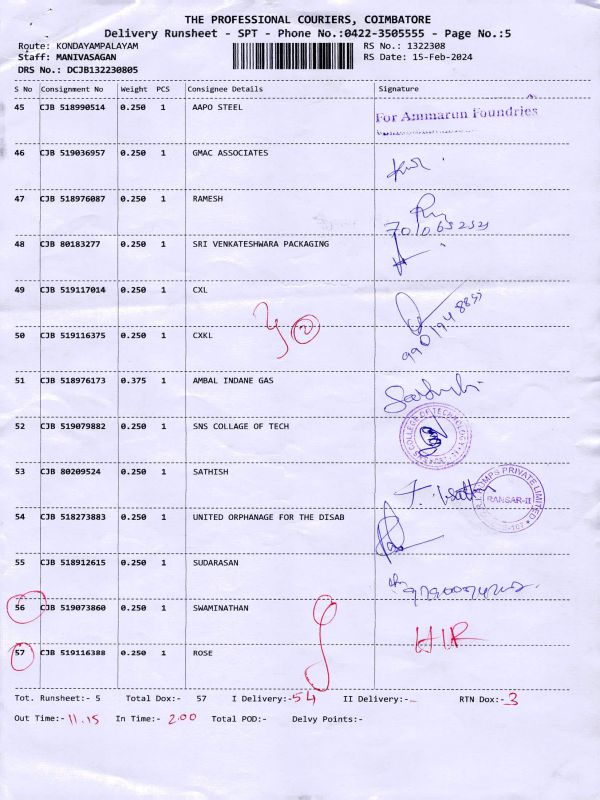 THE PROFESSIONAL COURIERS, COIMBATORE
Delivery Runsheet - SPT - Phone No.:0422-3505555 - Page No.:5
Route: KONDAYAMPALAYAM RS No.: 1322308
Staff: MANIVASAGAN RS Date: 15-Feb-2024
DRS No.: DCJB132230805
S No Consignment No Weight PCS Consignee Details Signature
45 CJB 518990514 0.250 1 AAPO STEEL
For Ammarun Foundries
46 CJB 519036957 0.250 1 GMAC ASSOCIATES
47 CJB 518976087 0.250 1 RAMESH
48 CJB 80183277 0.250 1 SRI VENKATESHWARA PACKAGING
49 CJB 519117014 0.250 1 CXL
50 CJB 519116375 0.250 1 CXKL
51 CJB 518976173 0.375 1 AMBAL INDANE GAS
52 CJB 519079882 0.250 1 SNS COLLAGE OF TECH
53 CJB 80209524 0.250 1 SATHISH
RANSAR-II
54 CJB 518273883 0.250 1 UNITED ORPHANAGE FOR THE DISAB
55 CJB 518912615 0.250 1 SUDARASAN
56 CJB 519073860 0.250 1 SWAMINATHAN
57 CJB 519116388 0.250 1 ROSE
Tot. Runsheet:- 5 Total Dox:- 57 I Delivery:-54 II Delivery:-- RTN Dox:-3
Out Time:-11.15 In Time:-2.00 Total POD:- Delvy Points:-